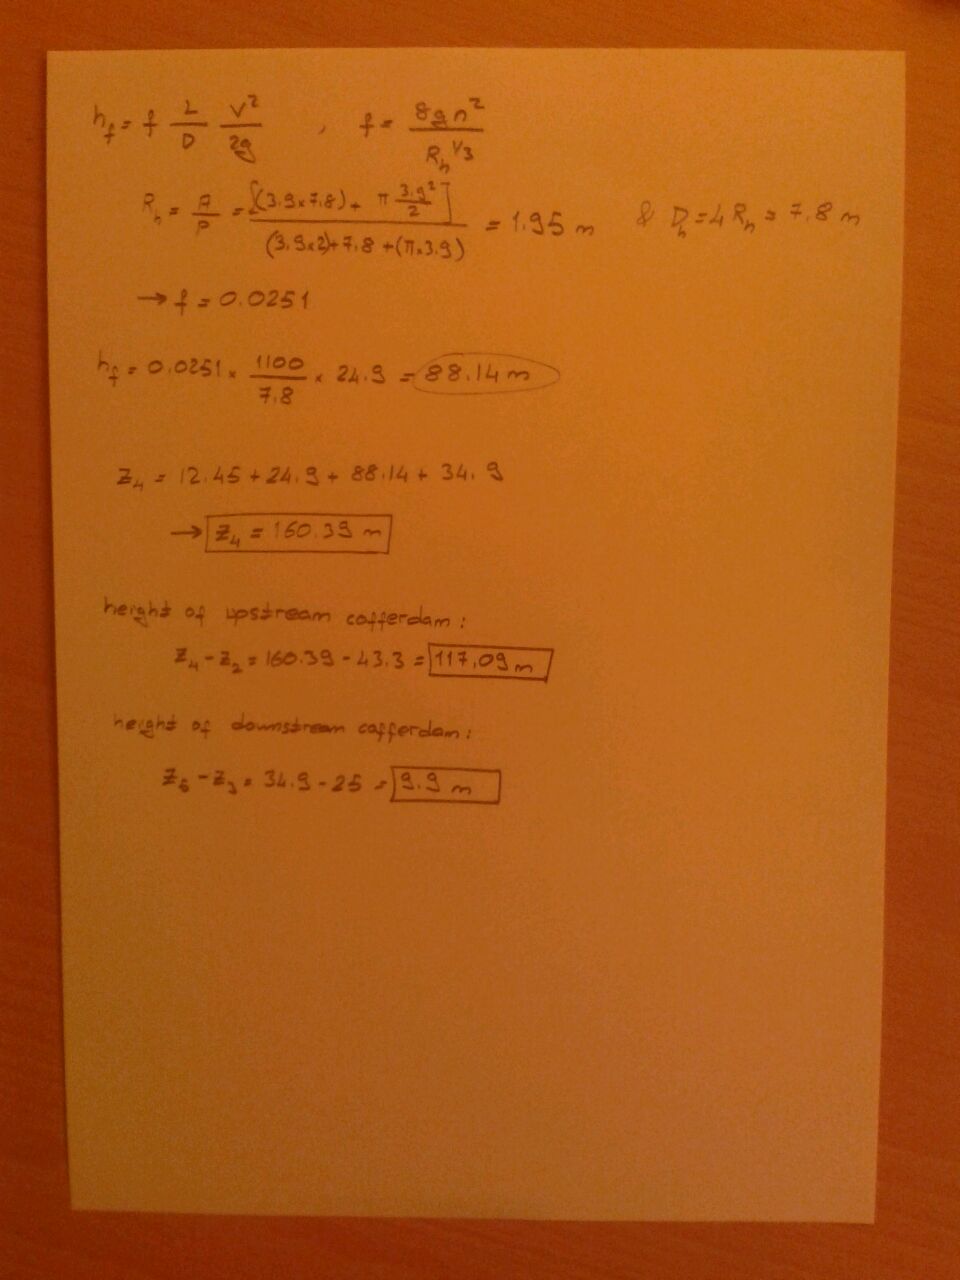 h_f = f L/D V²/2g , f = 8gn²/R_h^1/3
R_h = A/P = [(3.9x7.8) + π 3.9²/2]/(3.9x2)+7.8+(π x 3.9) = 1.95 m & D_h = 4R_h = 7.8 m
→ f = 0.0251
h_f = 0.0251 x 1100/7.8 x 24.9 = 88.14 m
z₄ = 12.45 + 24.9 + 88.14 + 34.9
→ z₄ = 160.39 m
height of upstream cofferdam :
z₄ - z₂ = 160.39 - 43.3 = 117.09 m
height of downstream cofferdam :
z₅ - z₃ = 34.9 - 25 = 9.9 m